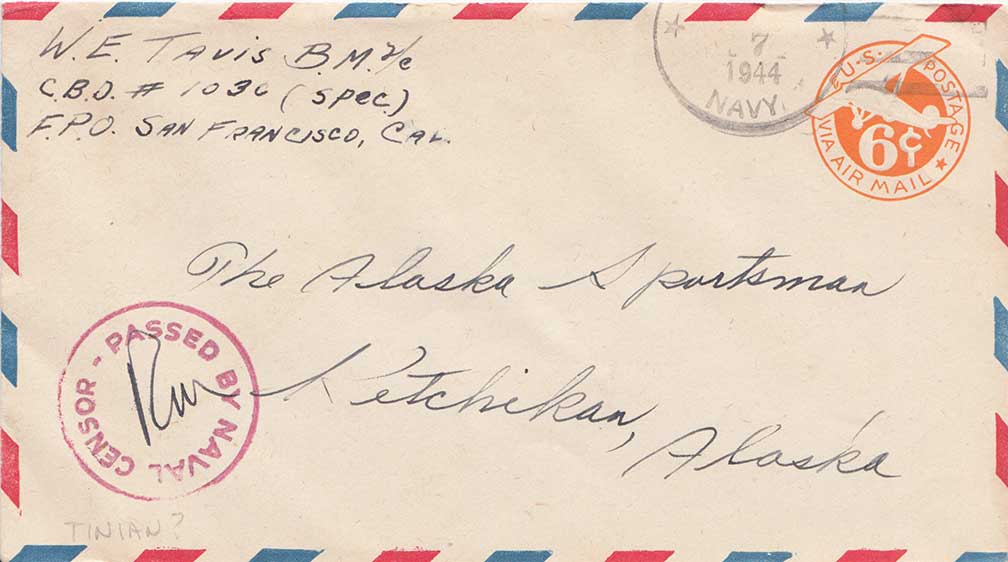 W. E. TAVIS B.M. 2/c
C.B.D. # 1036 (SPEC)
F.P.O. SAN FRANCISCO, CAL.
7
1944
NAVY
U.S. POSTAGE
VIA AIR MAIL
6¢
The Alaska Sportsman
Ketchikan,
Alaska
PASSED BY NAVAL CENSOR -
TINIAN?